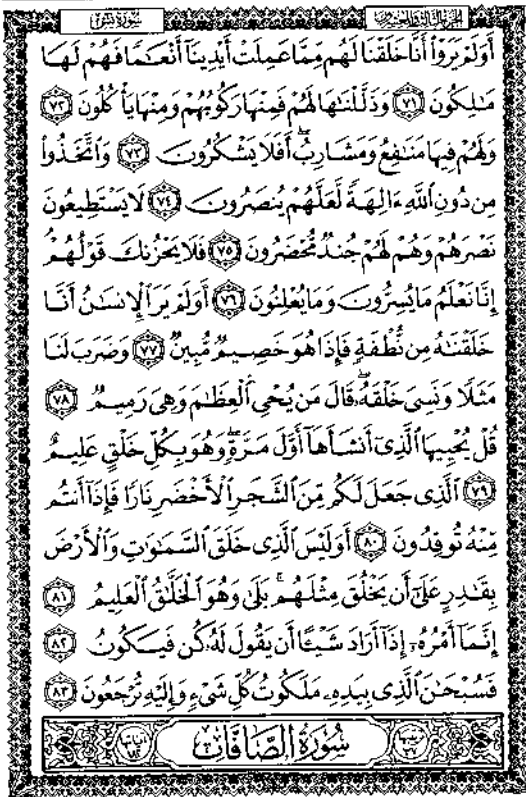 الجزء الثالث والعشرون
سورة يس
أَوَلَمْ يَرَوْا۟ أَنَّا خَلَقْنَا لَهُم مِّمَّا عَمِلَتْ أَيْدِينَآ أَنْعَـٰمًا فَهُمْ لَهَا
مَـٰلِكُونَ ٧١ وَذَلَّلْنَـٰهَا لَهُمْ فَمِنْهَا رَكُوبُهُمْ وَمِنْهَا يَأْكُلُونَ ٧٢
وَلَهُمْ فِيهَا مَنَـٰفِعُ وَمَشَارِبُ ۖ أَفَلَا يَشْكُرُونَ ٧٣ وَٱتَّخَذُوا۟
مِن دُونِ ٱللَّهِ ءَالِهَةً لَّعَلَّهُمْ يُنصَرُونَ ٧٤ لَا يَسْتَطِيعُونَ
نَصْرَهُمْ وَهُمْ لَهُمْ جُندٌ مُّحْضَرُونَ ٧٥ فَلَا يَحْزُنكَ قَوْلُهُمْ ۘ
إِنَّا نَعْلَمُ مَا يُسِرُّونَ وَمَا يُعْلِنُونَ ٧٦ أَوَلَمْ يَرَ ٱلْإِنسَـٰنُ أَنَّا
خَلَقْنَـٰهُ مِن نُّطْفَةٍ فَإِذَا هُوَ خَصِيمٌ مُّبِينٌ ٧٧ وَضَرَبَ لَنَا
مَثَلًا وَنَسِىَ خَلْقَهُۥ ۖ قَالَ مَن يُحْىِ ٱلْعِظَـٰمَ وَهِىَ رَمِيمٌ ٧٨
قُلْ يُحْيِيهَا ٱلَّذِىٓ أَنشَأَهَآ أَوَّلَ مَرَّةٍ ۖ وَهُوَ بِكُلِّ خَلْقٍ عَلِيمٌ
٧٩ ٱلَّذِى جَعَلَ لَكُم مِّنَ ٱلشَّجَرِ ٱلْأَخْضَرِ نَارًا فَإِذَآ أَنتُم
مِّنْهُ تُوقِدُونَ ٨٠ أَوَلَيْسَ ٱلَّذِى خَلَقَ ٱلسَّمَـٰوَٰتِ وَٱلْأَرْضَ
بِقَـٰدِرٍ عَلَىٰٓ أَن يَخْلُقَ مِثْلَهُم ۚ بَلَىٰ وَهُوَ ٱلْخَلَّـٰقُ ٱلْعَلِيمُ ٨١
إِنَّمَآ أَمْرُهُۥٓ إِذَآ أَرَادَ شَيْـًٔا أَن يَقُولَ لَهُۥ كُن فَيَكُونُ ٨٢
فَسُبْحَـٰنَ ٱلَّذِى بِيَدِهِۦ مَلَكُوتُ كُلِّ شَىْءٍ وَإِلَيْهِ تُرْجَعُونَ ٨٣
سُورَةُ الصَّافَّاتِ